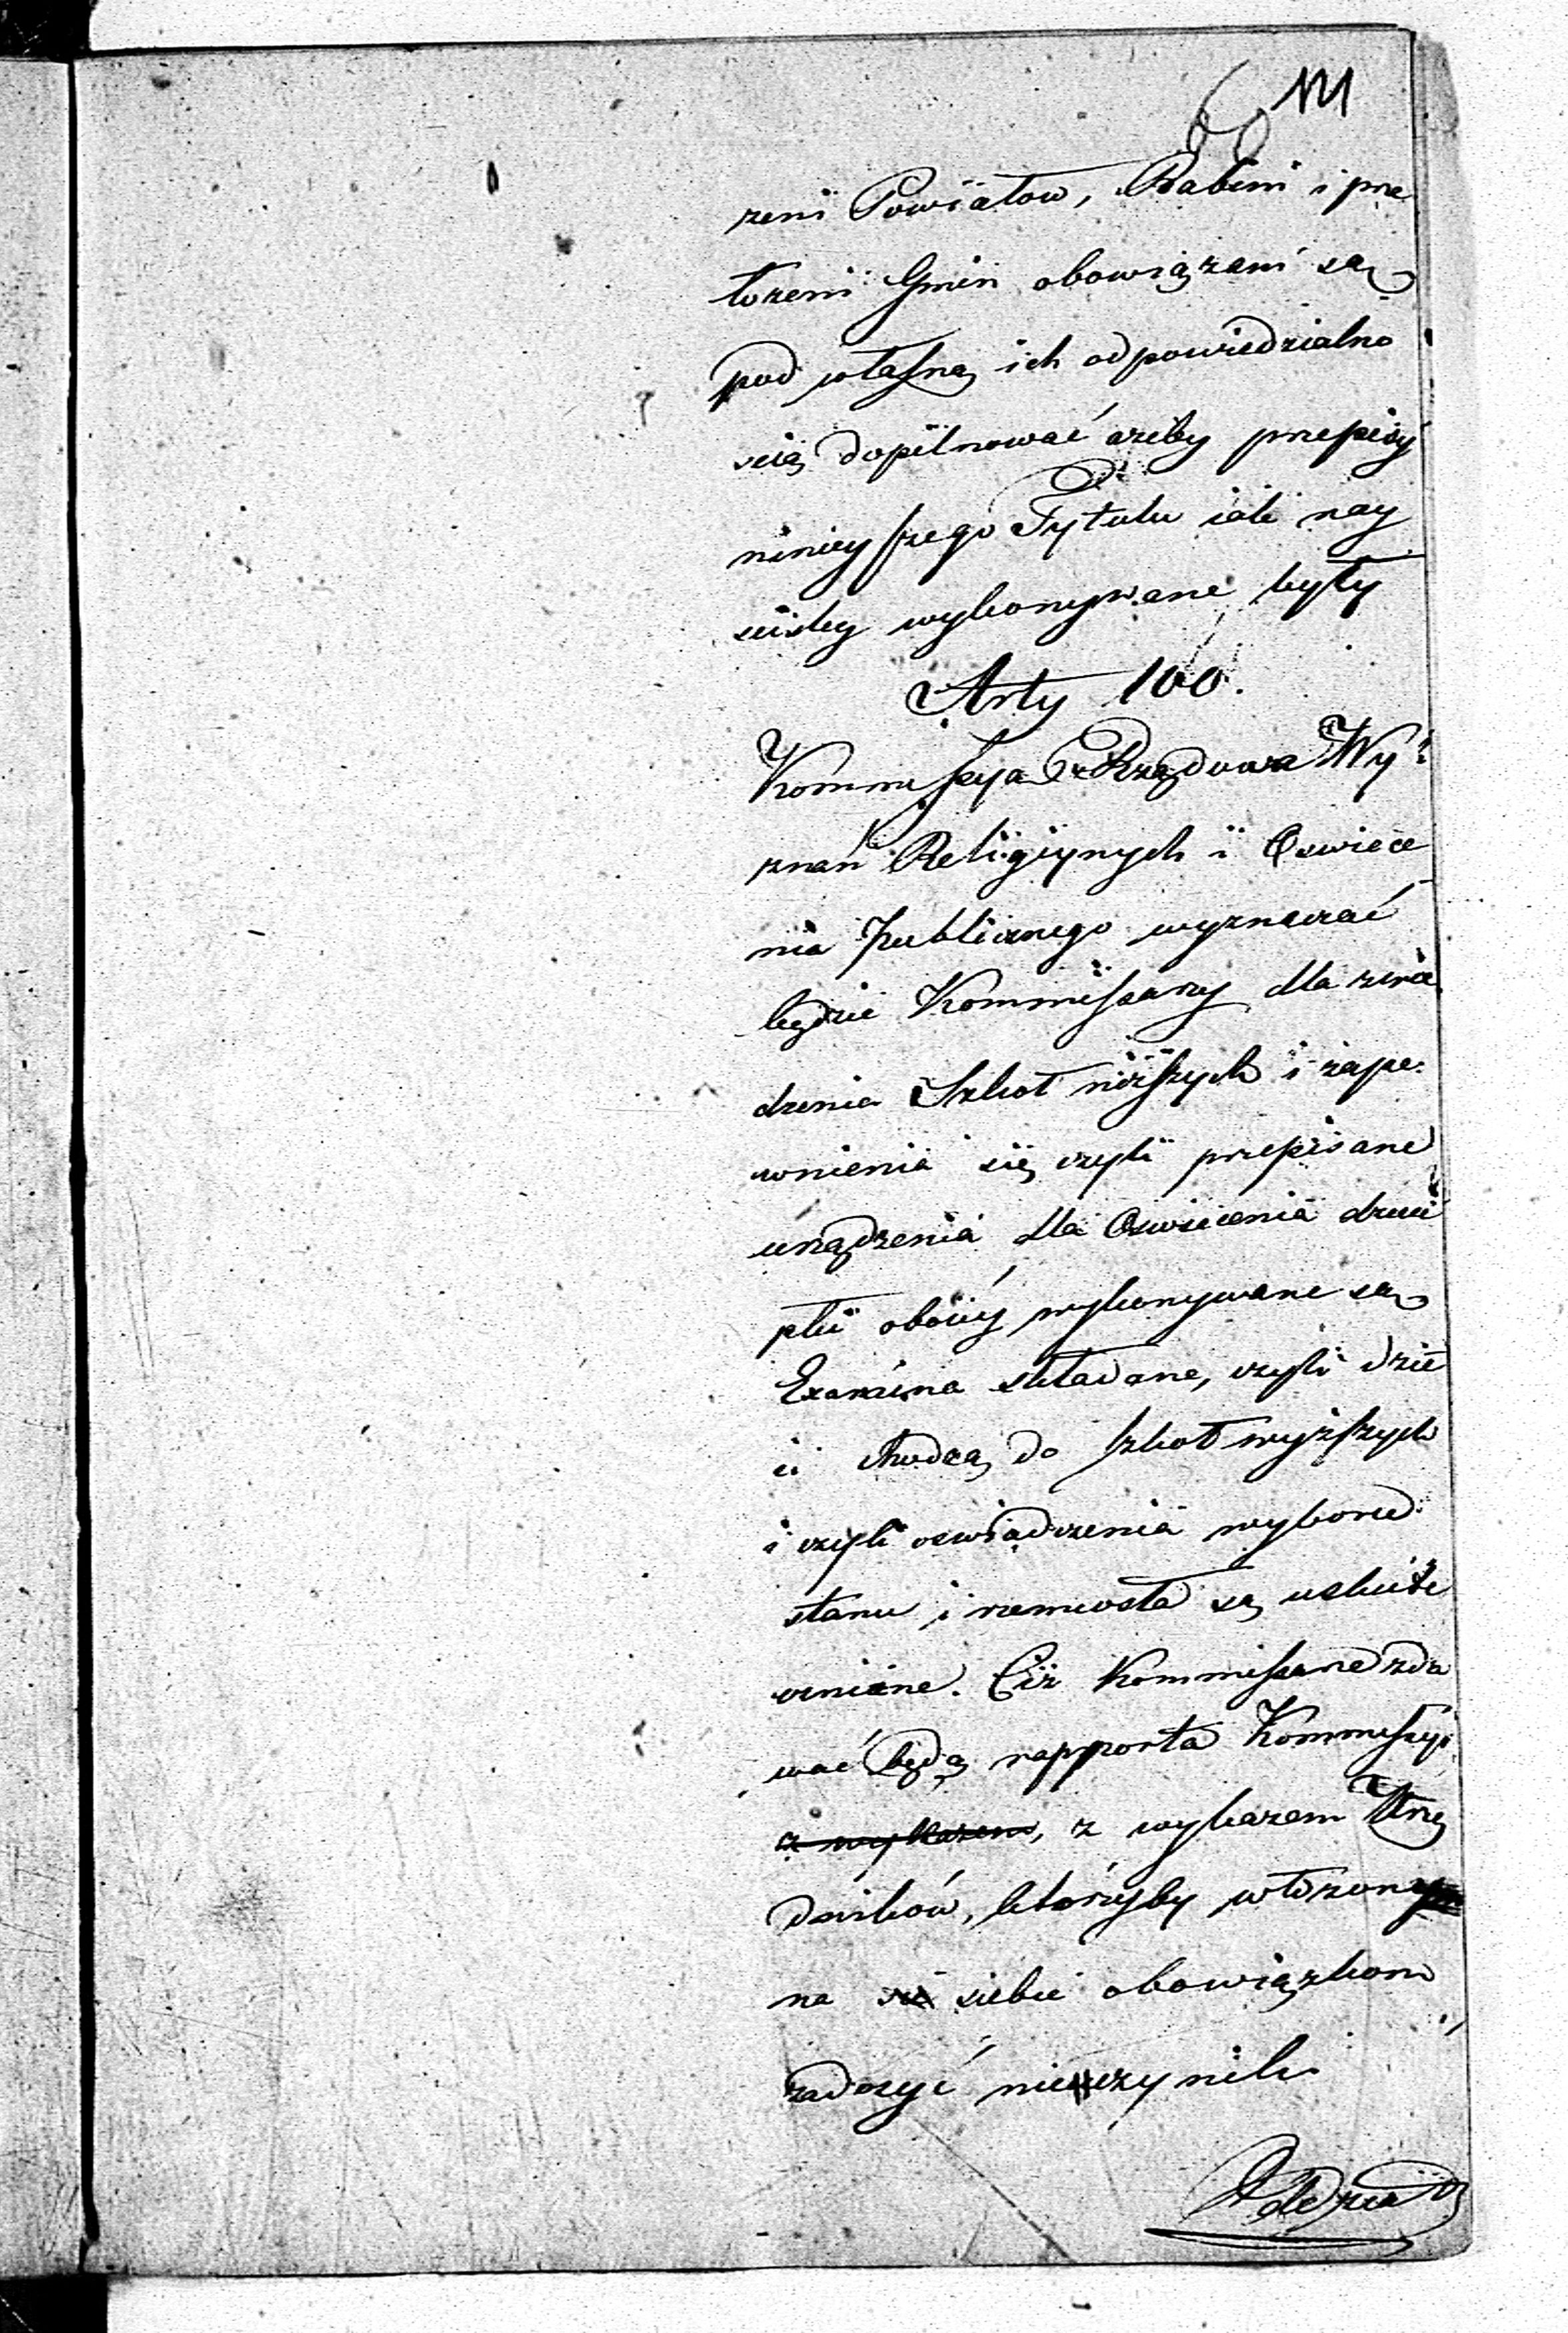 111
żeni Powiatow, Rabini i prze
łożeni Gmin obowiązani są
pod własną ich odpowiedzialno
scią dopilnować azeby przepisy
ninieyszego Tytułu iak nay
scisley wykonywane były
Arty 100.
Kommissya Rządowa Wy-
znań Religiynych i Oswiece
nia Publicznego wyznaczać
będzie Kommissarzy dla zwie
dzenia Szkoł niższych i zape-
wnienia się czyli przepisane
urządzenia dla Oswiecenia dzieci
płci oboiéy wykonywane są
Examina składane, czyli dzie
ci chodzą do szkoł wyższych
i czyli oswiadczenia wyboru
stanu i rzemiosła są uskute
cznione. Ciż Kommissarze zda
wać będą rapporta Kommissyi
z wykazem, z wykazem Urzę
dników, którzyby włożonym
na sie siebie obowiązkom
zadosyć nieuczynili